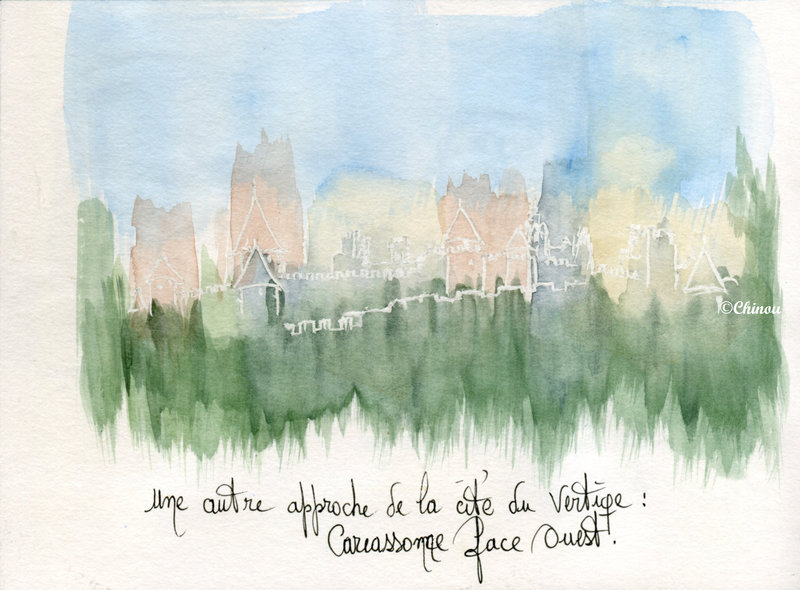 ©Chinou
une autre approche de la cité du Vertige :
Carcassonne face Ouest !